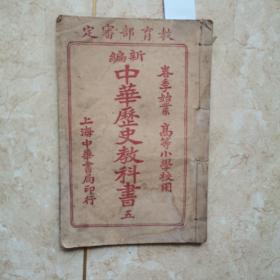 定審部育教
新編
春季始業 高等小學校用
中華歷史教科書 五
上海中華書局印行